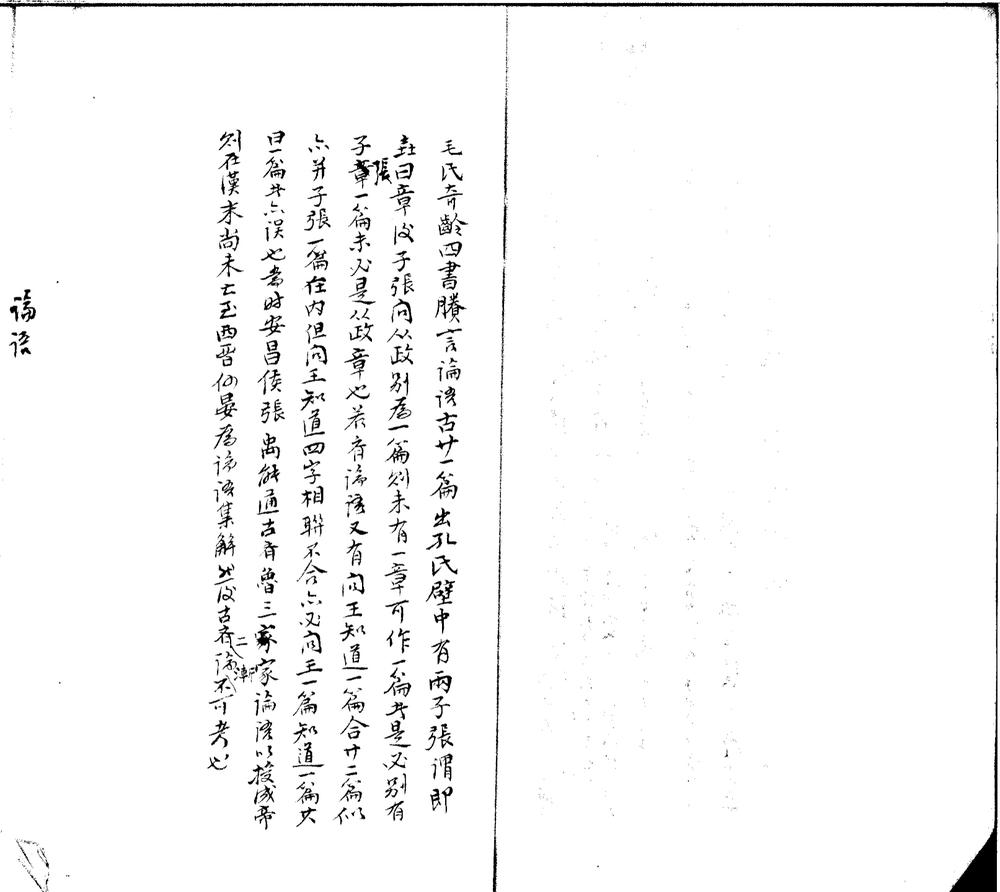 毛氏奇齡四書賸言論语古廿一篇出孔氏壁中有兩子張谓即
堯曰章後子張问从政别為一篇则未有一章可作一篇者是必别有
子張一篇未必是从政章也若齊論语又有问王知道一篇合廿二篇似
亦并子張一篇在内但问王知道四字相聯不合亦必问王一篇知道一篇其
曰一篇者亦误也當时安昌侯張禹能通古齊魯三家論语以授成帝
则在漢末尚未亡至西晋何晏為論语集解然後古齊二論漸不可考也
論语